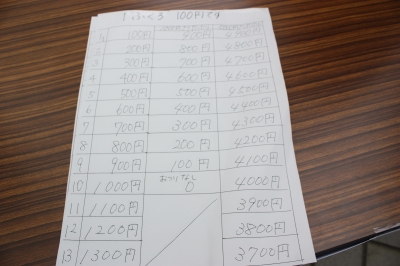 1ふくろ 100円です
1 100円 900円 4900円
2 200円 800円 4800円
3 300円 700円 4700円
4 400円 600円 4600円
5 500円 500円 4500円
6 600円 400円 4400円
7 700円 300円 4300円
8 800円 200円 4200円
9 900円 100円 4100円
10 1000円 おつりなし 0 4000円
11 1100円 3900円
12 1200円 3800円
13 1300円 3700円